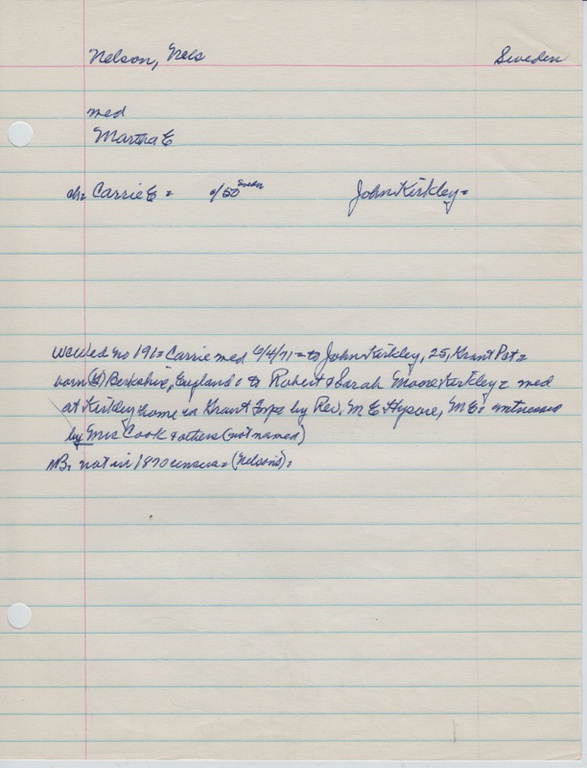 Nelson, Nels Sweden
med
Martha E
ch= Carrie E= c/50 Sweden John Kirkley=
Wedded no 191= Carrie med 6/4/71= to John Kirkley, 25, Grant Pst=
born Berkshire, England= to Robert & Sarah Moore Kirkley= med
at Kirkley home in Grant Twp by Rev. M E= witnessed
by Mrs Cook & others (not named)
NB= not in 1870 census= (Nelsons)=